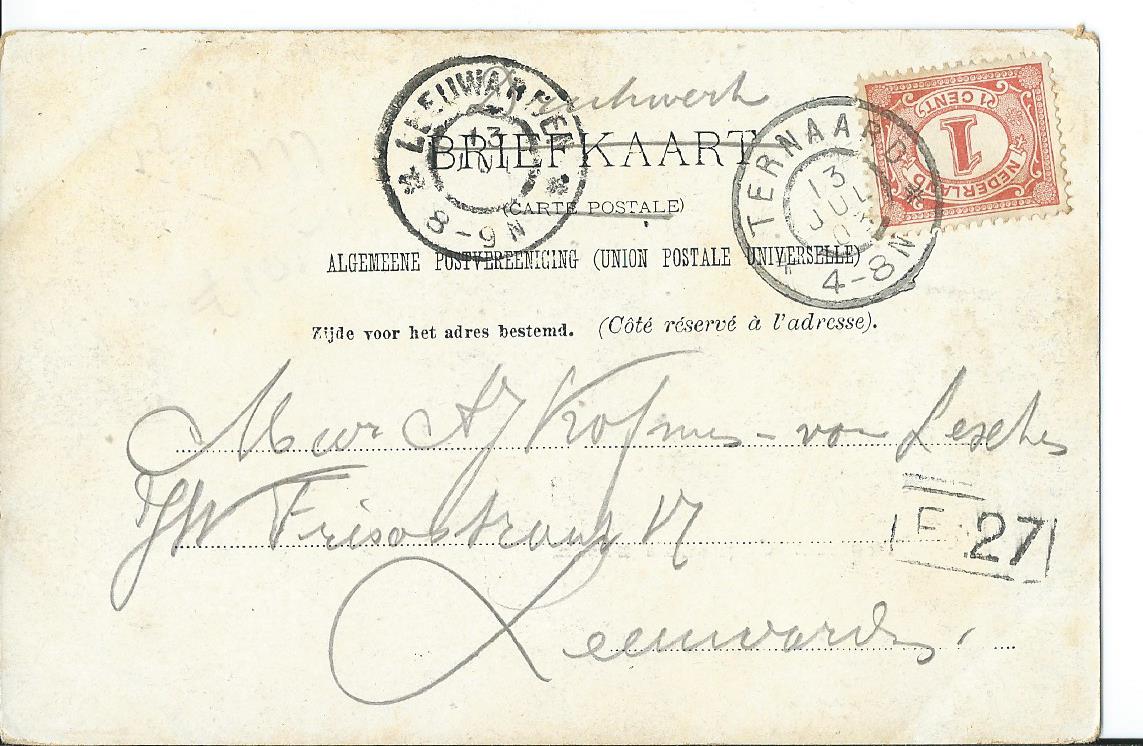 Drukwerk
BRIEFKAART
(CARTE POSTALE)
ALGEMEENE POSTVEREENIGING (UNION POSTALE UNIVERSELLE)
Zijde voor het adres bestemd. (Côté réservé à l'adresse).
LEEUWARDEN
13
8-9N
TERNAARD
13 JUL
4-8N
NEDERLAND
1 CENT
1
Mevr AJ Kofman - von
JW Frisostraat 17
Leeuwarden
27